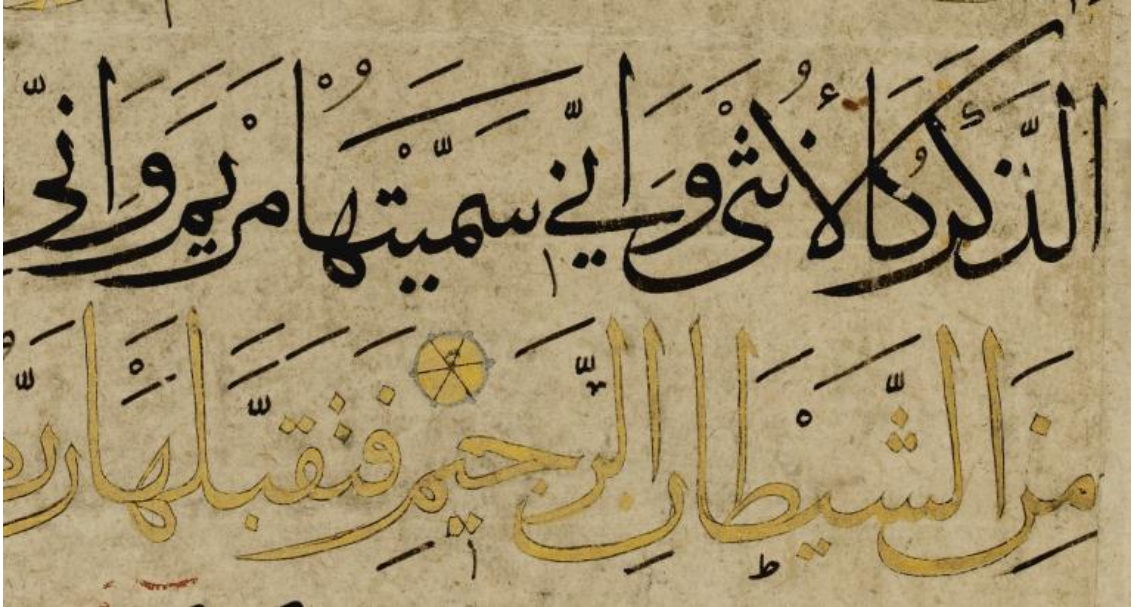 الذَّكَرُ كَالْأُنْثَى وَاِنّي سَمَّيْتُهَا مَرْيَمَ وَاِنّي
مِنَ الشَّيْطَانِ الرَّجِيمِ فَتَقَبَّلَهَا رَبُّهَا